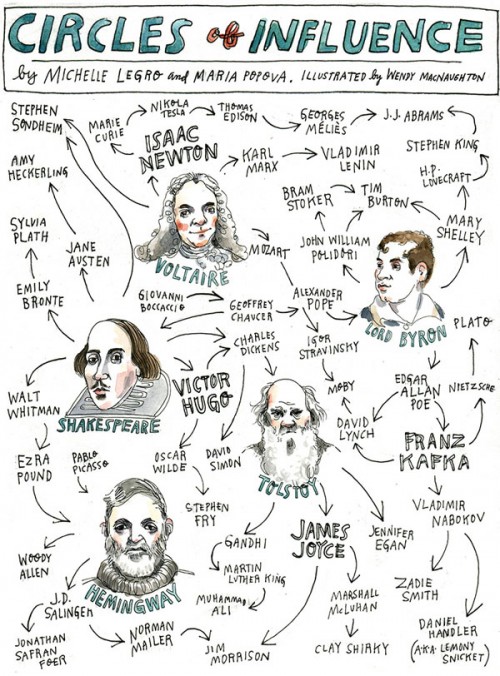 CIRCLES of INFLUENCE
by MICHELLE LEGRO and MARIA POPOVA. ILLUSTRATED by WENDY MACNAUGHTON
STEPHEN
SONDHEIM
MARIE
CURIE
NIKOLA
TESLA
THOMAS
EDISON
GEORGES
MÉLIÈS
J.J. ABRAMS
ISAAC
NEWTON
AMY
HECKERLING
KARL
MARX
VLADIMIR
LENIN
STEPHEN KING
H.P.
LOVECRAFT
BRAM
STOKER
TIM
BURTON
SYLVIA
PLATH
JANE
AUSTEN
VOLTAIRE
MOZART
JOHN WILLIAM
POLIDORI
MARY
SHELLEY
EMILY
BRONTE
GIOVANNI
BOCCACCIO
GEOFFREY
CHAUCER
ALEXANDER
POPE
LORD BYRON
PLATO
CHARLES
DICKENS
IGOR
STRAVINSKY
WALT
WHITMAN
SHAKESPEARE
VICTOR
HUGO
MOBY
EDGAR
ALLAN
POE
NIETZSCHE
DAVID
LYNCH
FRANZ
KAFKA
EZRA
POUND
PABLO
PICASSO
OSCAR
WILDE
DAVID
SIMON
TOLSTOY
STEPHEN
FRY
VLADIMIR
NABOKOV
WOODY
ALLEN
GANDHI
JAMES
JOYCE
JENNIFER
EGAN
HEMINGWAY
MARTIN
LUTHER KING
ZADIE
SMITH
J.D.
SALINGER
MUHAMMAD
ALI
MARSHALL
McLUHAN
JONATHAN
SAFRAN
FOER
NORMAN
MAILER
JIM
MORRISON
CLAY SHIRKY
DANIEL
HANDLER
(A.K.A. LEMONY
SNICKET)